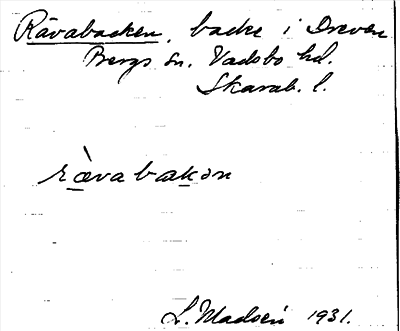 Rävabacken, backe i Dreven
Bergs sn. Vadsbo hd.
Skarab. l.
ræ̀vabakən
L. Madsén 1931.